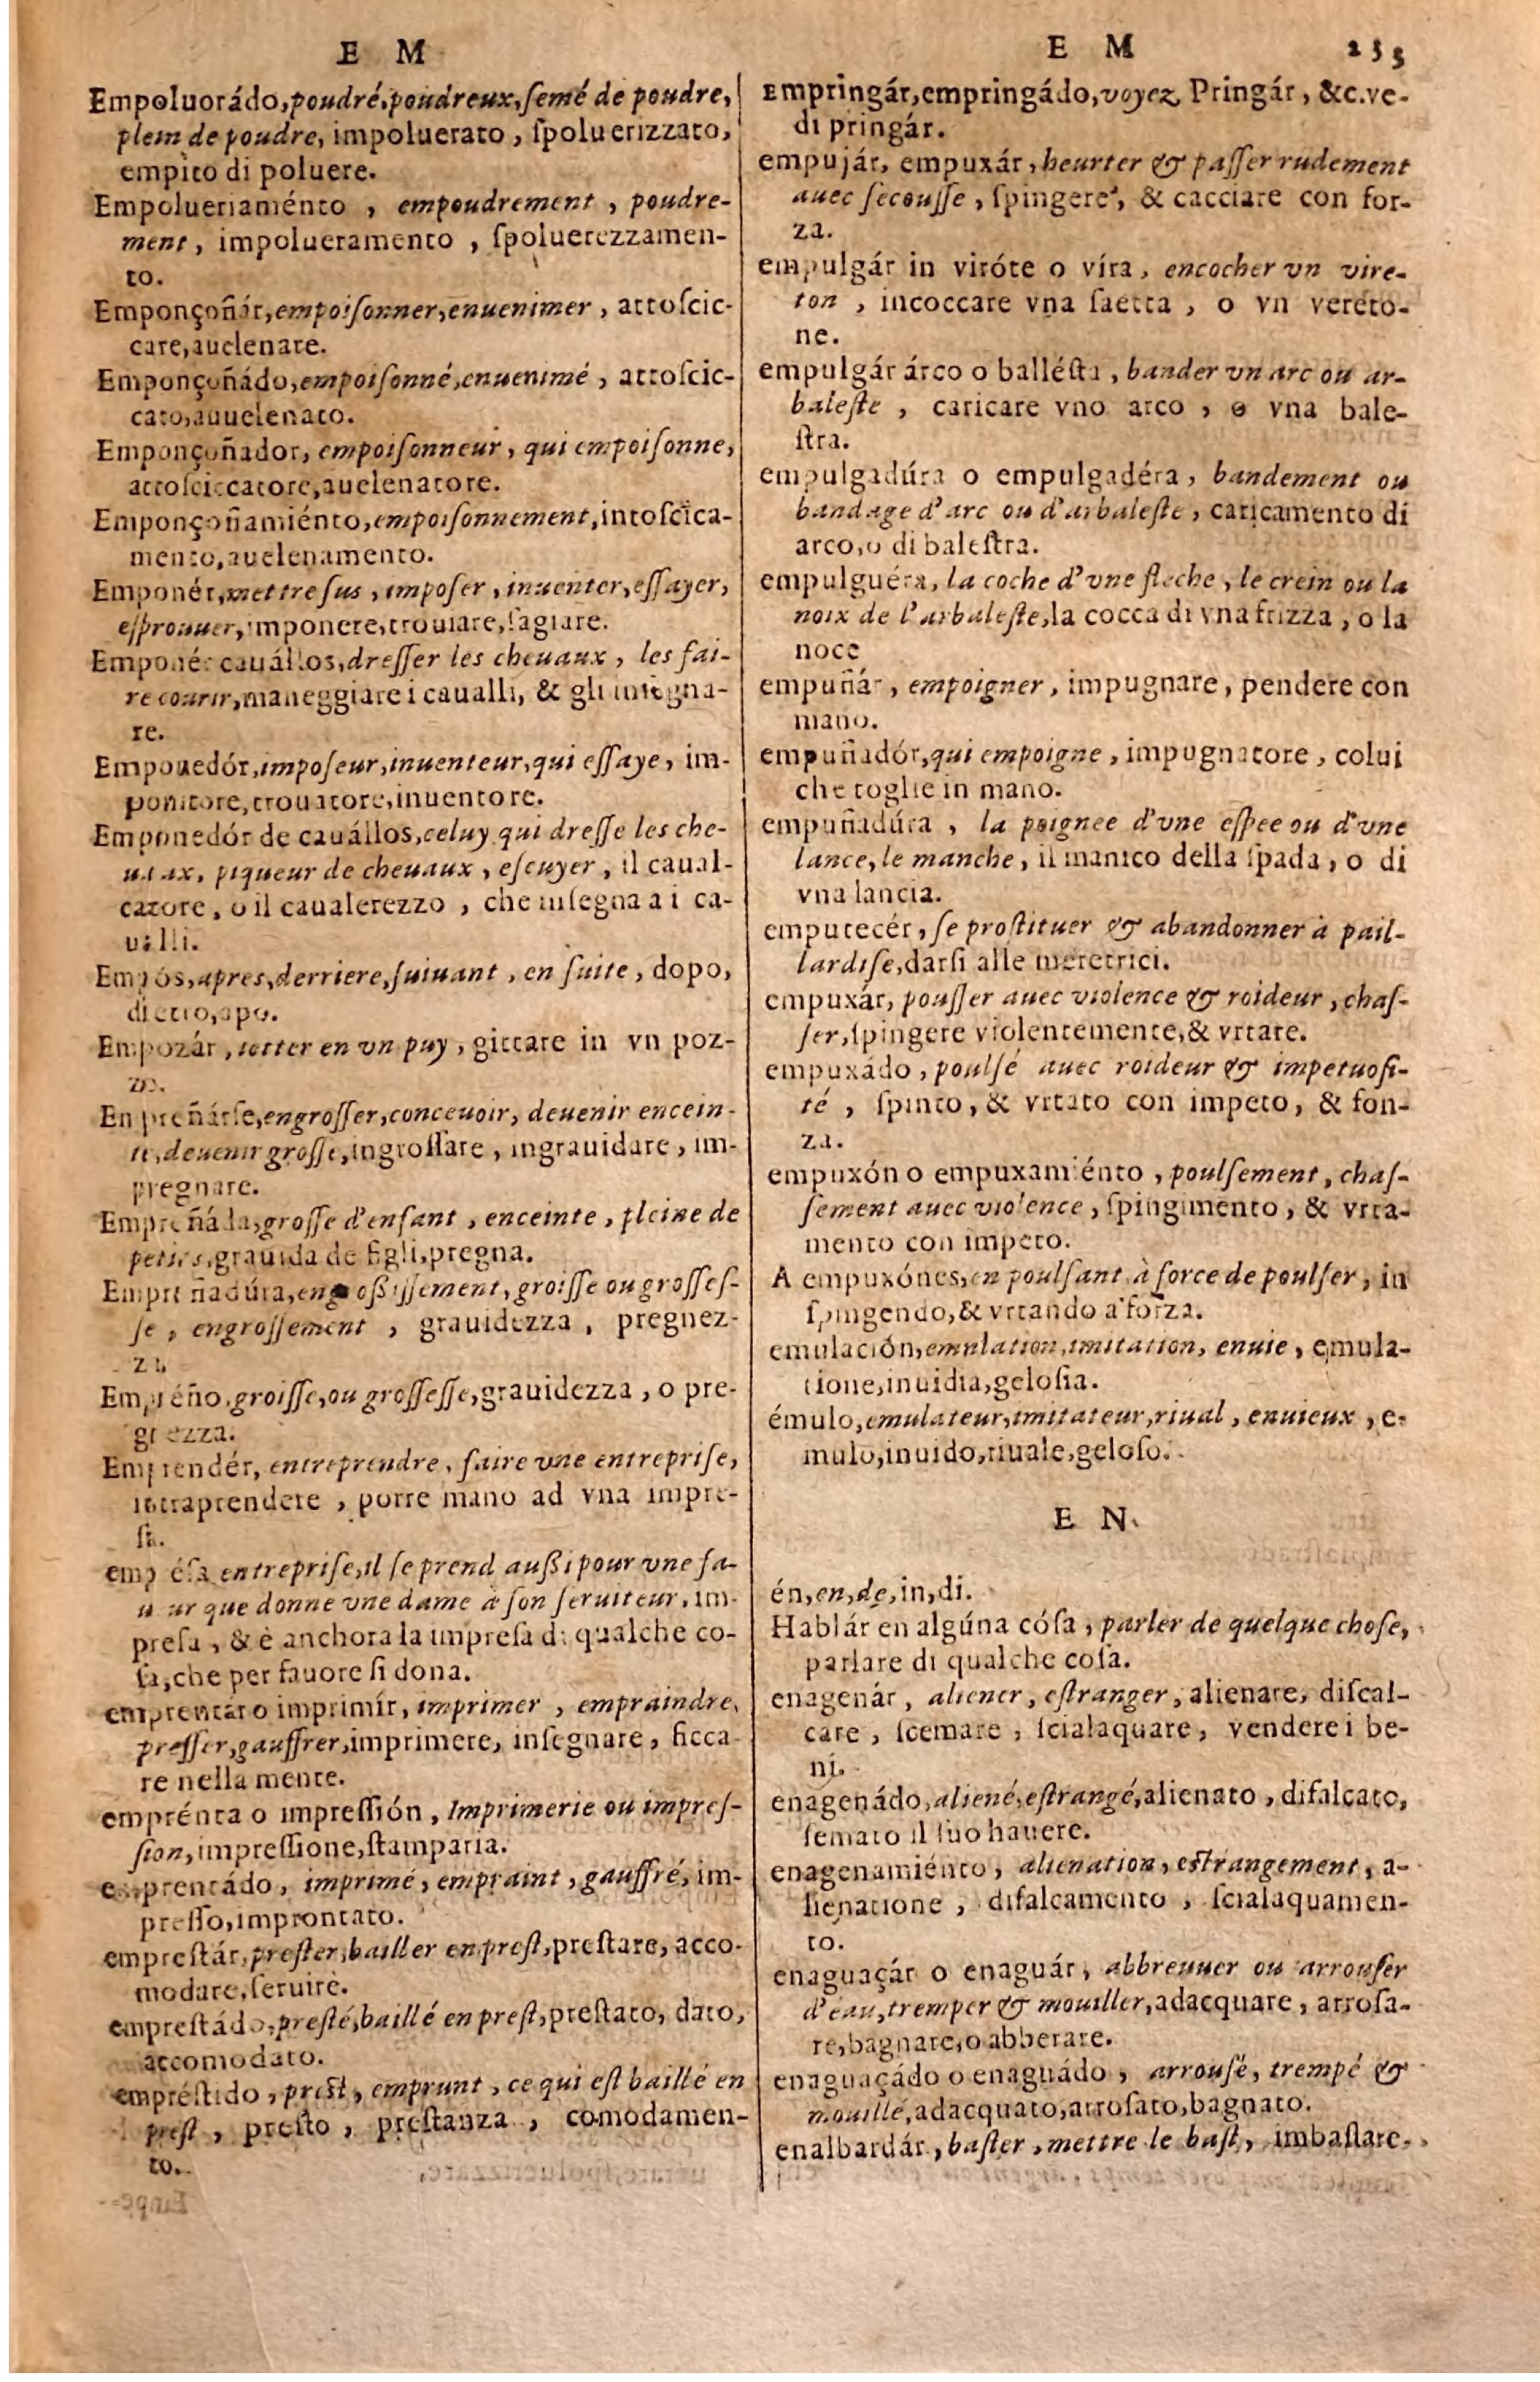 E M
Empoluorádo, poudré, poudreux, ſemé de poudre,
plein de poudre, impoluerato, ſpoluerizzato,
empìto di poluere.
Empolueriaménto, empoudrement, poudre-
ment, impolueramento, ſpoluerezzamen-
to.
Emponçoñár, empoiſonner, enuenimer, attoſcic-
care, auelenare.
Emponçoñádo, empoiſonné, enuenimé, attoſcic-
cato, auuelenato.
Emponçoñador, empoiſonneur, qui empoiſonne,
attoſciccatore, auelenatore.
Emponçoñamiénto, empoiſonnement, intoſcica-
mento, auelenamento.
Emponér, mettre ſus, impoſer, inuenter, eſſayer,
eſprouuer, imponere, trouiare, ſagiare.
Emponér cauállos, dreſſer les cheuaux, les fai-
re courir, maneggiare i caualli, & gli inſegna-
re.
Emponedór, impoſeur, inuenteur, qui eſſaye, im-
ponitore, trouatore, inuentore.
Emponedór de cauállos, celuy qui dreſſe les che-
uaux, piqueur de cheuaux, eſcuyer, il caual-
catore, o il caualerezzo, che inſegna a i ca-
ualli.
Empós, apres, derriere, ſuiuant, en ſuite, dopo,
dietro, apo.
Empozár, ietter en vn puy, gittare in vn poz-
zo.
Enpreñárſe, engroſſer, conceuoir, deuenir encein-
te, deuenir groſſe, ingroſſare, ingrauidare, im-
pregnare.
Empreñáda, groſſe d'enfant, enceinte, pleine de
petits, grauida de figli, pregna.
Empreñadúra, engroſſiſſement, groiſſe ou groſſeſ-
ſe, engroſſement, grauidezza, pregnez-
za
Empréño, groiſſe, ou groſſeſſe, grauidezza, o pre-
gnezza.
Emprendér, entreprendre, faire vne entrepriſe,
intraprendere, porre mano ad vna impre-
ſa.
empréſa entrepriſe, il ſe prend auſſi pour vne fa-
ueur que donne vne dame à ſon ſeruiteur, im-
preſa, & è anchora la impreſa di qualche co-
ſa, che per fauore ſi dona.
emprentár o imprimír, imprimer, empraindre,
preſſer, gauffrer, imprimere, inſegnare, ficca-
re nella mente.
emprénta o impreſſión, Imprimerie ou impreſ-
ſion, impreſſione, ſtamparia.
emprentádo, imprimé, empraint, gauffré, im-
preſſo, improntato.
empreſtár, preſter, bailler en preſt, preſtare, acco-
modare, ſeruire.
empreſtádo, preſté, baillé en preſt, preſtato, dato,
accomodato.
empréſtido, preſt, emprunt, ce qui eſt baillé en
preſt, preſto, preſtanza, comodamen-
to.
E M 235
Empringár, empringádo, voyez Pringár, &c. ve-
di pringár.
empujár, empuxár, heurter & paſſer rudement
auec ſecouſſe, ſpingere, & cacciare con for-
za.
empulgár in viróte o víra, encocher vn vire-
ton, incoccare vna ſaetta, o vn vereto-
ne.
empulgár árco o balléſta, bander vn arc ou ar-
baleſte, caricare vno arco, o vna bale-
ſtra.
empulgadúra o empulgadéra, bandement ou
bandage d'arc ou d'arbaleſte, caricamento di
arco, o di baleſtra.
empulguéra, la coche d'vne fleche, le crein ou la
noix de l'arbaleſte, la cocca di vna frizza, o la
noce
empuñár, empoigner, impugnare, pendere con
mano.
empuñadór, qui empoigne, impugnatore, colui
che toglie in mano.
empuñadúra, la poignee d'vne eſpee ou d'vne
lance, le manche, il manico della ſpada, o di
vna lancia.
emputecér, ſe proſtituer & abandonner à pail-
lardiſe, darſi alle meretrici.
empuxár, pouſſer auec violence & roideur, chaſ-
ſer, ſpingere violentemente, & vrtare.
empuxádo, poulſé auec roideur & impetuoſi-
té, ſpinto, & vrtato con impeto, & fon-
za.
empuxón o empuxamiénto, poulſement, chaſ-
ſement auec violence, ſpingimento, & vrta-
mento con impeto.
A empuxónes, en poulſant, à force de poulſer, in
ſpingendo, & vrtando a forza.
emulación, emulation, imitation, enuie, emula-
tione, inuidia, geloſia.
émulo, emulateur, imitateur, riual, enuieux, e-
mulo, inuido, riuale, geloſo.
E N.
én, en, de, in, di.
Hablár en algúna cóſa, parler de quelque choſe,
parlare di qualche coſa.
enagenár, aliener, eſtranger, alienare, difcal-
care, ſcemare, ſcialaquare, vendere i be-
ni.
enagenádo, aliené, eſtrangé, alienato, difalcato,
ſemato il ſuo hauere.
enagenamiénto, alienation, eſtrangement, a-
lienatione, difalcamento, ſcialaquamen-
to.
enaguaçár o enaguár, abbreuuer ou arrouſer
d'eau, tremper & mouiller, adacquare, arroſa-
re, bagnare, o abberare.
enaguaçádo o enaguádo, arrouſé, trempé &
mouillé, adacquato, arroſato, bagnato.
enalbardár, baſter, mettre le baſt, imbaſtare.